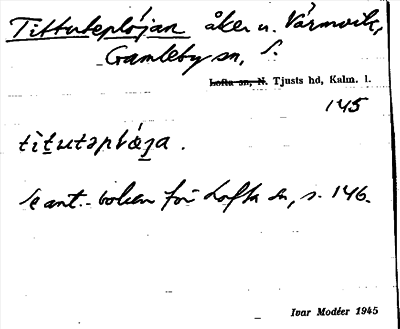 Tittuteplöjan åker u. Värmvik,
Gamleby sn, S.
Lofta sn, N. Tjusts hd, Kalm. l.
145
Se ant.-boken för Lofta sn, s. 146.
Ivar Modéer 1945